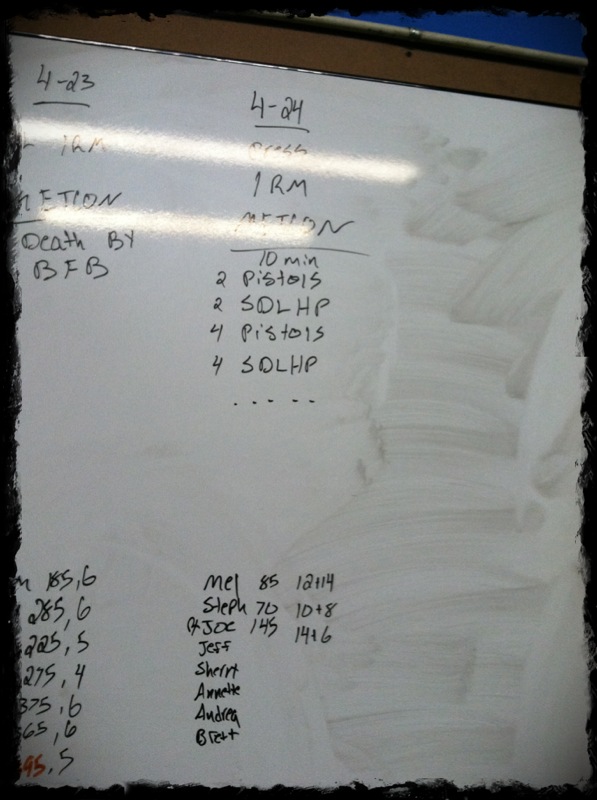 4-23
1RM
METCON
Death BY
BFB
185,6
285,6
225,5
275,4
375,6
365,6
95,5
4-24
Press
1RM
METCON
10 min
2 Pistols
2 SDLHP
4 Pistols
4 SDLHP
.....
Mel 85 12+14
Steph 70 10+8
JOE 145 14+6
Jeff
Sherry
Annette
Andrea
Brett